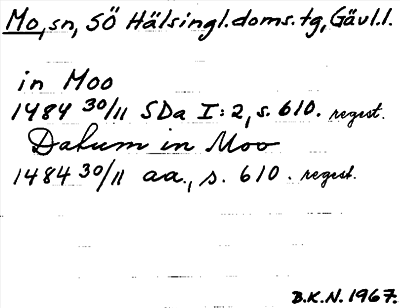 Mo, sn, SÖ Hälsingl. doms. tg, Gävl. l.
in Moo
1484 30/11 SDa I:2, s. 610. regest.
Datum in Moo
1484 30/11 aa., s. 610. regest.
B.K.N. 1967.